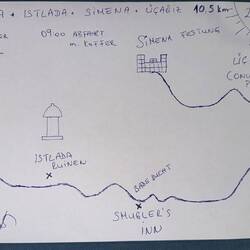 • ISTLADA • SIMENA • ÜÇAĞIZ 10,5 km
09:00 ABFAHRT
m. KOFFER
SIMENA FESTUNG
ISTLADA
RUINEN
BADEBUCHT
SMUGLER'S
INN